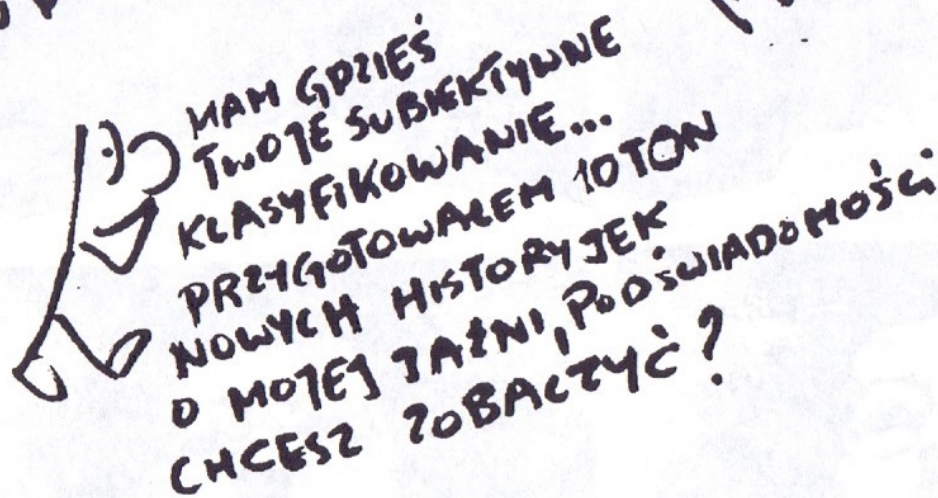 MAM GDZIEŚ
TWOJE SUBIEKTYWNE
KLASYFIKOWANIE...
PRZYGOTOWAŁEM 10 TON
NOWYCH HISTORYJEK
O MOJEJ JAŹNI, PODŚWIADOMOŚCI.
CHCESZ ZOBACZYĆ?